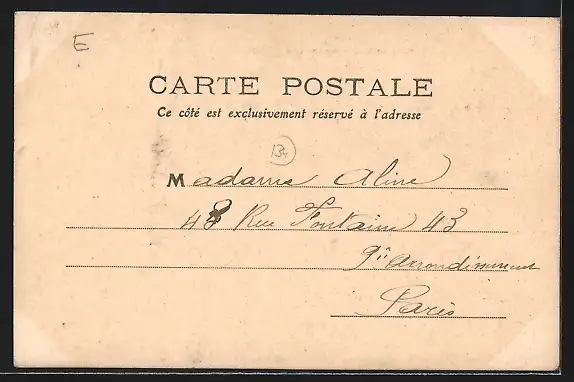 E
CARTE POSTALE
Ce côté est exclusivement réservé à l'adresse
Madame Aline
43 Rue Fontaine 43
9e arrondissement
Paris